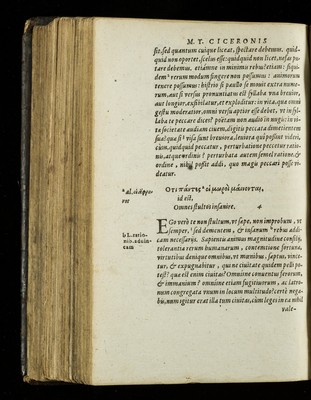 M. T. CICERONIS
sit, sed quantum cuique liceat, spectare debemus. quid-
quid non oportet, scelus esse: quidquid non licet, nefas pu-
tare debemus. etiámne in minimis rebus? etiam: siqui-
dem rerum modum fingere non possumus: animorum
tenere possumus: histrio si paullo se mouit extra nume-
rum, aut si versus pronuntiatus est syllaba vna breuior,
aut longior, exsibilatur, et exploditur: in vita. qua omni
gestu moderatior, omni versu aptior esse debet, vt in syl-
laba te peccare dices? poëtam non audio in nugis: in vi-
ta societate audiam ciuem, digitis peccata dimetientem
sua? qua si visa sunt breuiora, leuiora qui possint videri,
cùm, quidquid peccatur, perturbatione peccetur ratio-
nis, atque ordinis? perturbata autem semel ratione, &
ordine, nihil possit addi, quo magis peccari posse vi-
deatur.
ΟΤΙ πάντες οἱ μωροὶ μαίνονται,
id est,
Omnes stultos insanire. 4
EGo verò te non stultum, vt sæpe, non improbum, vt
semper, sed dementem, & insanum rebus addi-
cam necessarijs. Sapientis animus magnitudine consilij,
tolerantia rerum humanarum, contemtione fortunæ,
virtutibus denique omnibus, vt mœnibus, sæptus, vince-
tur, & expugnabitur, qui ne ciuitate quidem pelli po-
test? quæ est enim ciuitas? Omnisne conuentus ferorum,
& immanium? omnisne etiam fugitiuorum, ac latro-
num congregata vnum in locum multitudo? certè nega-
bis. num igitur erat illa tum ciuitas, cùm leges in ea nihil
vale-